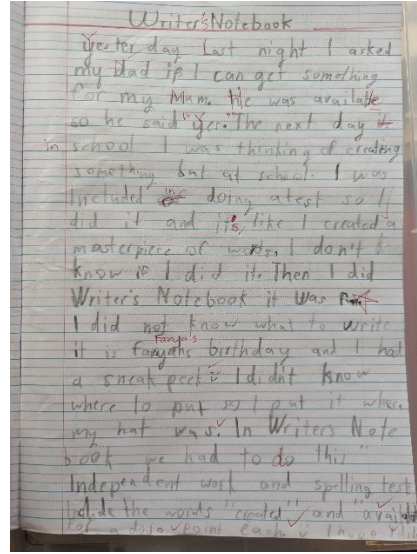 Writer's Notebook
Yesterday Last night I asked
my Dad if I can get something
for my Mum. He was available
so he said "yes." The next day
in school I was thinking of creating
something but at school. I was
Included in doing a test so I
did it and it's like I created a
masterpiece of words. I don't
know if I did it. Then I did
Writer's Notebook it was
I did not know what to write
Fanya's
it is birthday and I had
a sneak peek I didn't know
where to put so I put it where
my hat was. In Writer's Note
book we had to do this
Independent work and spelling test
Include the words "created" and "availabl
For a dojo point each